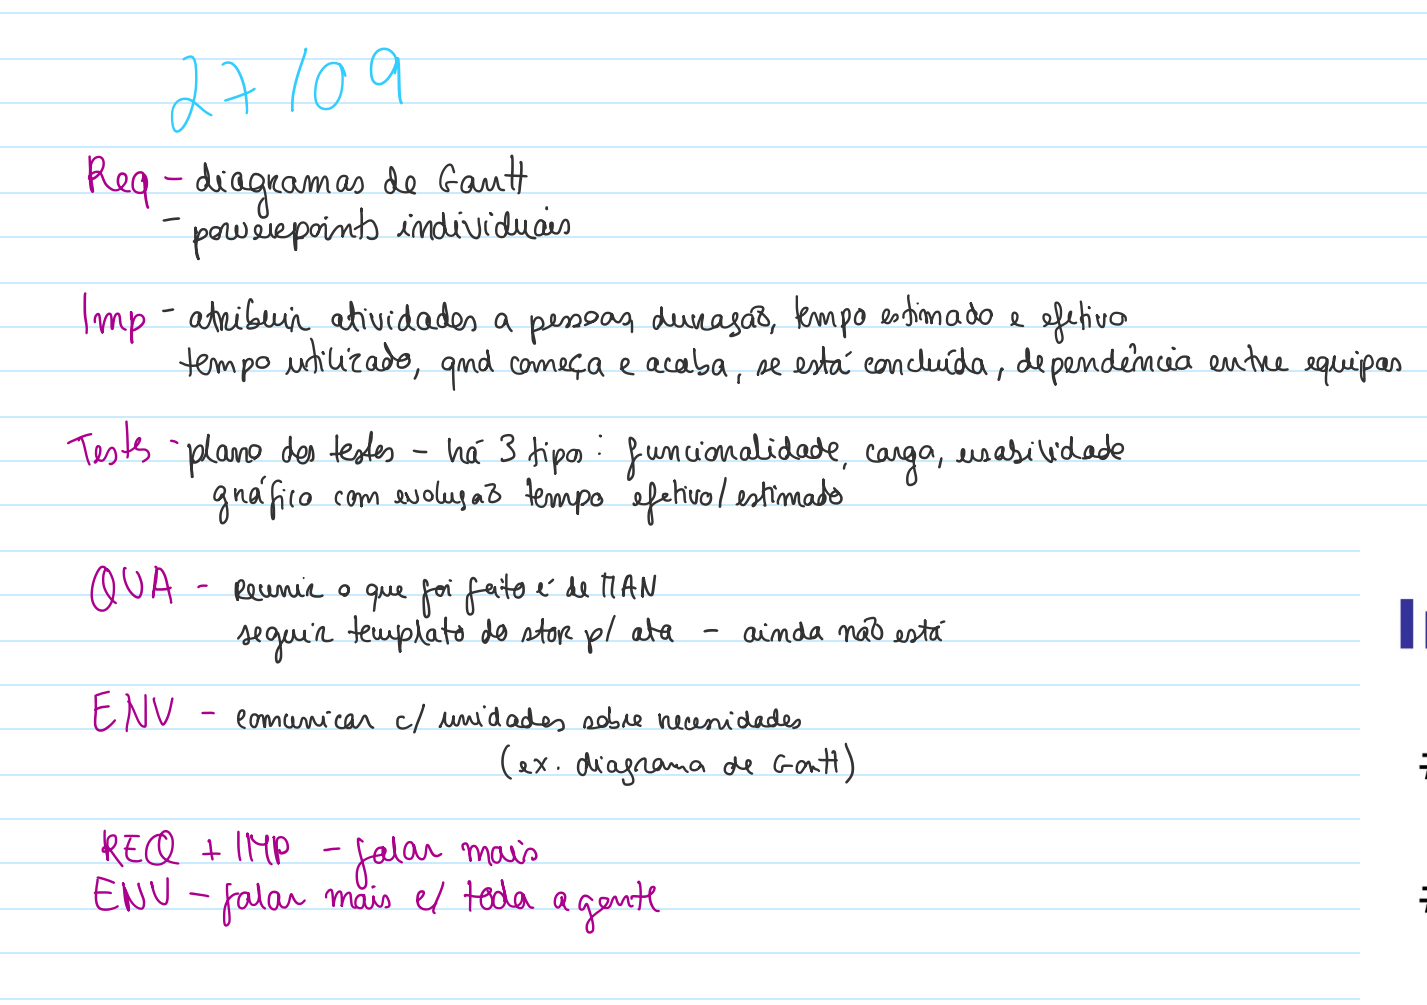 27/09
Req - diagramas de Gantt
- powerpoints individuais
Imp - atribuir atividades a pessoas, duração, tempo estimado e efetivo
tempo utilizado, qnd começa e acaba, se está concluída, dependência entre equipas
Tests - plano dos testes - há 3 tipos: funcionalidade, carga, usabilidade
gráfico com evolução tempo efetivo/estimado
QUA - Reunir o que foi feito é de MAN
seguir templato do stor p/ ata - ainda não está
ENV - comunicar c/ unidades sobre necessidades
(ex. diagrama de Gantt)
REQ + IMP - falar mais
ENV - falar mais c/ toda a gente
#
#